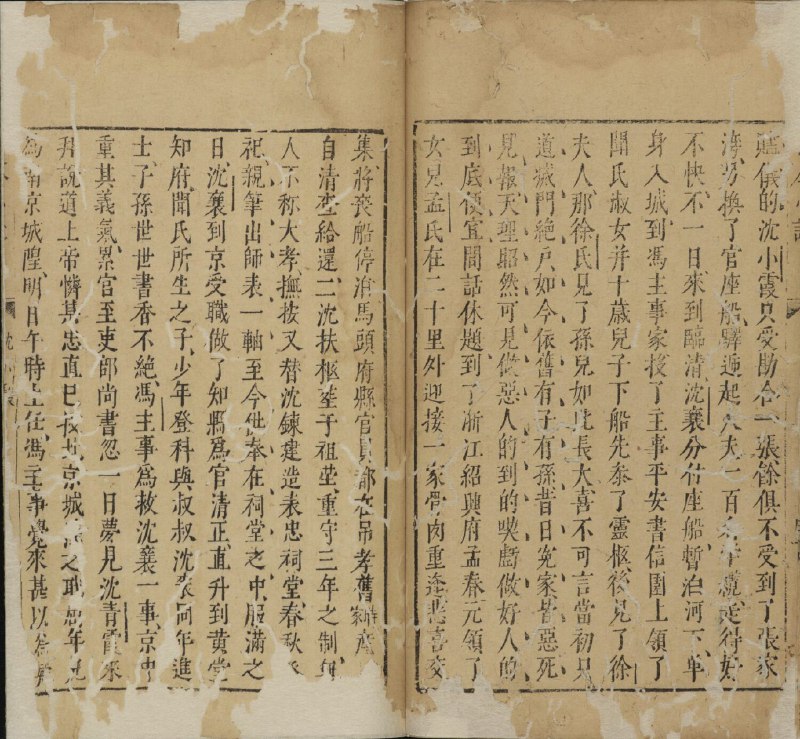 贐儀的沈小霞只受勘合一張餘俱不受到了張家
灣又換了官座船驛遞起人夫一百名牽纜走得好
不快不一日來到臨清沈襄分付座船暫泊河下單
身入城到馮主事家投了主事平安書信園上領了
聞氏淑女并十歲兒子下船先叅了靈柩後見了徐
夫人那徐氏見了孫兒如此長大喜不可言當初只
道滅門絕戸如今依舊有子有孫昔日冤家皆惡死
見報天理昭然可見做惡人的到的喫虧做好人的
到底便宜閒話休題到了浙江紹興府孟春元領了
女兒孟氏在二十里外迎接一家骨肉重逢悲喜交
集將喪船停泊馬頭府縣官員都在吊孝舊時家產
自清查給還二沈扶柩葬于祖塋重守三年之制無
人不称大孝撫按又替沈鍊建造表忠祠堂春秋
祀親筆出師表一軸至今供奉在祠堂之中服滿之
日沈襄到京受職做了知縣爲官清正直升到黄堂
知府聞氏所生之子少年登科與叔叔沈袠同年進
士子孫世世書香不絕馮主事爲救沈襄一事京中
重其義氣累官至吏部尚書忽一日夢見沈青霞來
拜說道上帝憐某忠直已授北京城隍之職年兄
爲南京城隍明日午時上任馮主事覺來甚以爲
沈小霞